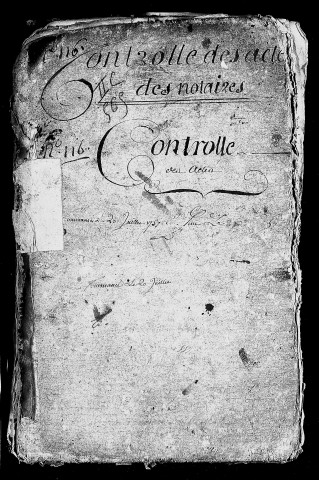 No 110. Controlle des acte
II C
568
des notaires
No 116.
Controlle
des Actes
Commencé le 20 Juillet
Commencé le 20 Juillet